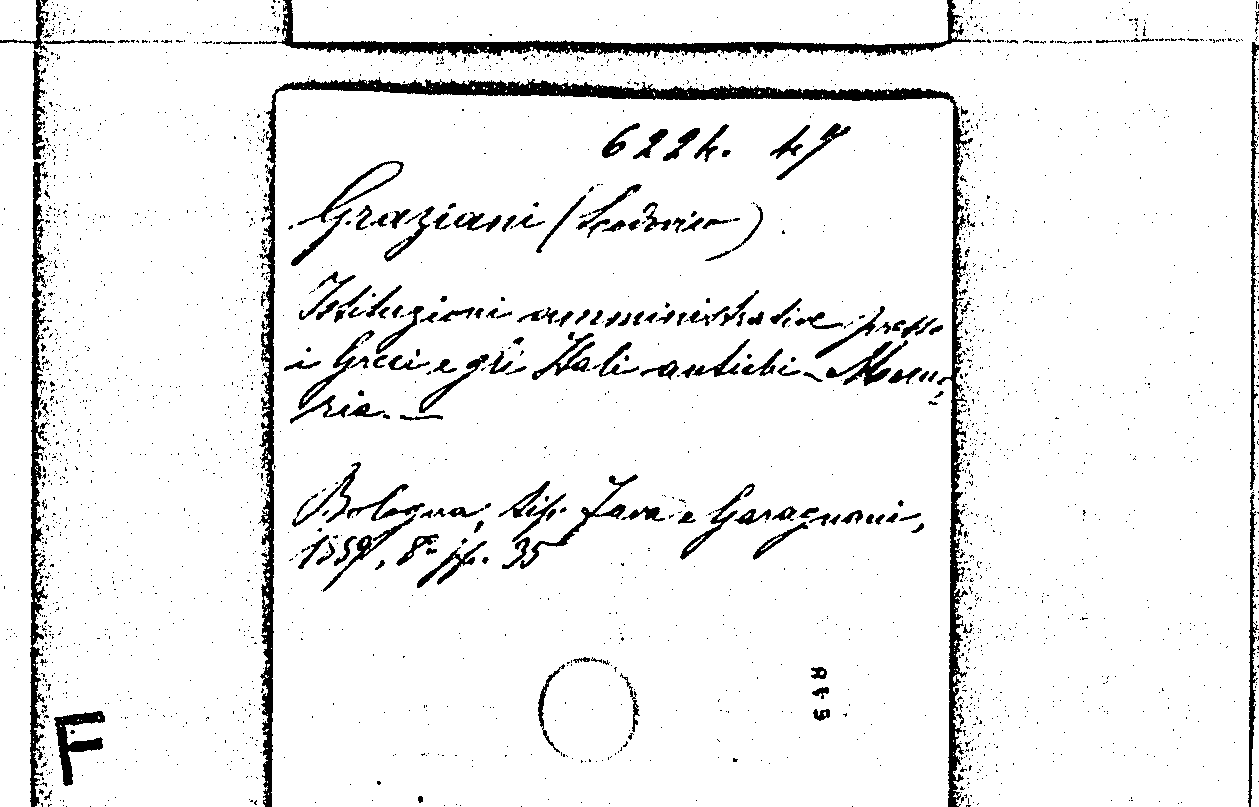 6224. 47
Graziani (Lodovico)
Istituzioni amministrative presso
i Greci e gli Itali antichi - Memo-
ria. —
Bologna, tip. Fava e Garagnani,
1889, 8° pp. 35
845
F